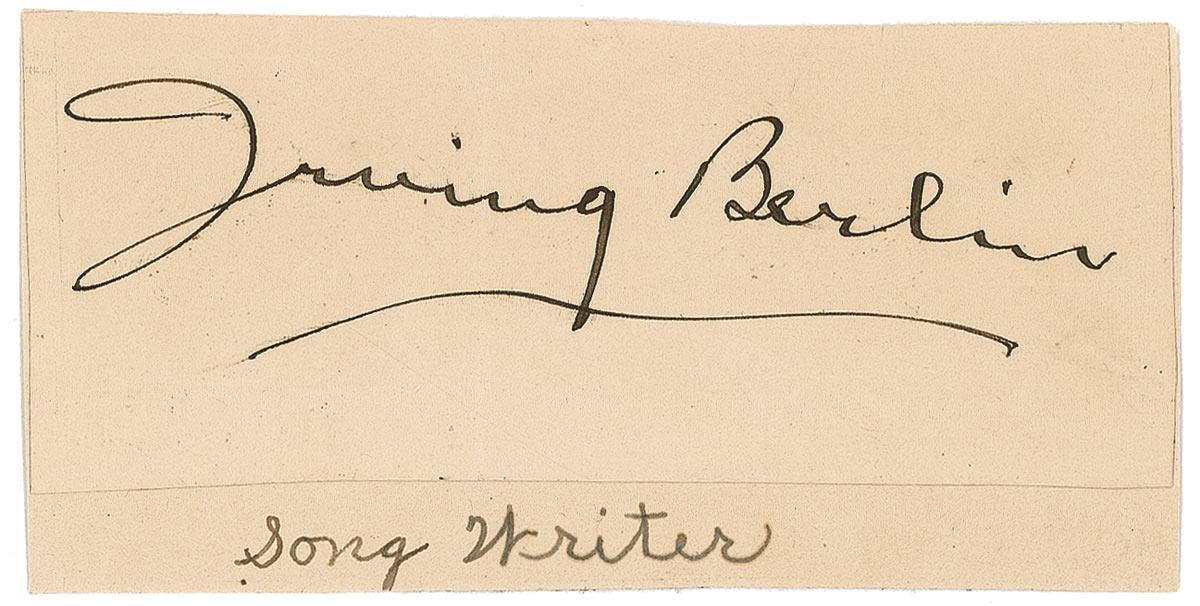 Irving Berlin
Song Writer